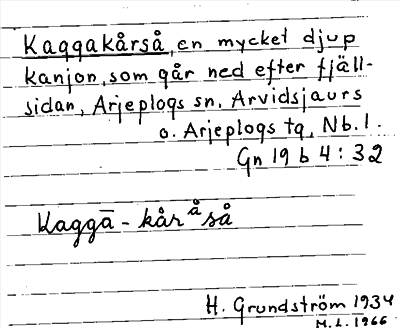 Kaggakårså, en mycket djup
kanjon, som går ned efter fjäll-
sidan, Arjeplogs sn, Arvidsjaurs
o. Arjeplogs tg, Nb. l.
Gn 19 b 4 : 32
Kaggā - kåråså
H. Grundström 1934
M. L. 1966